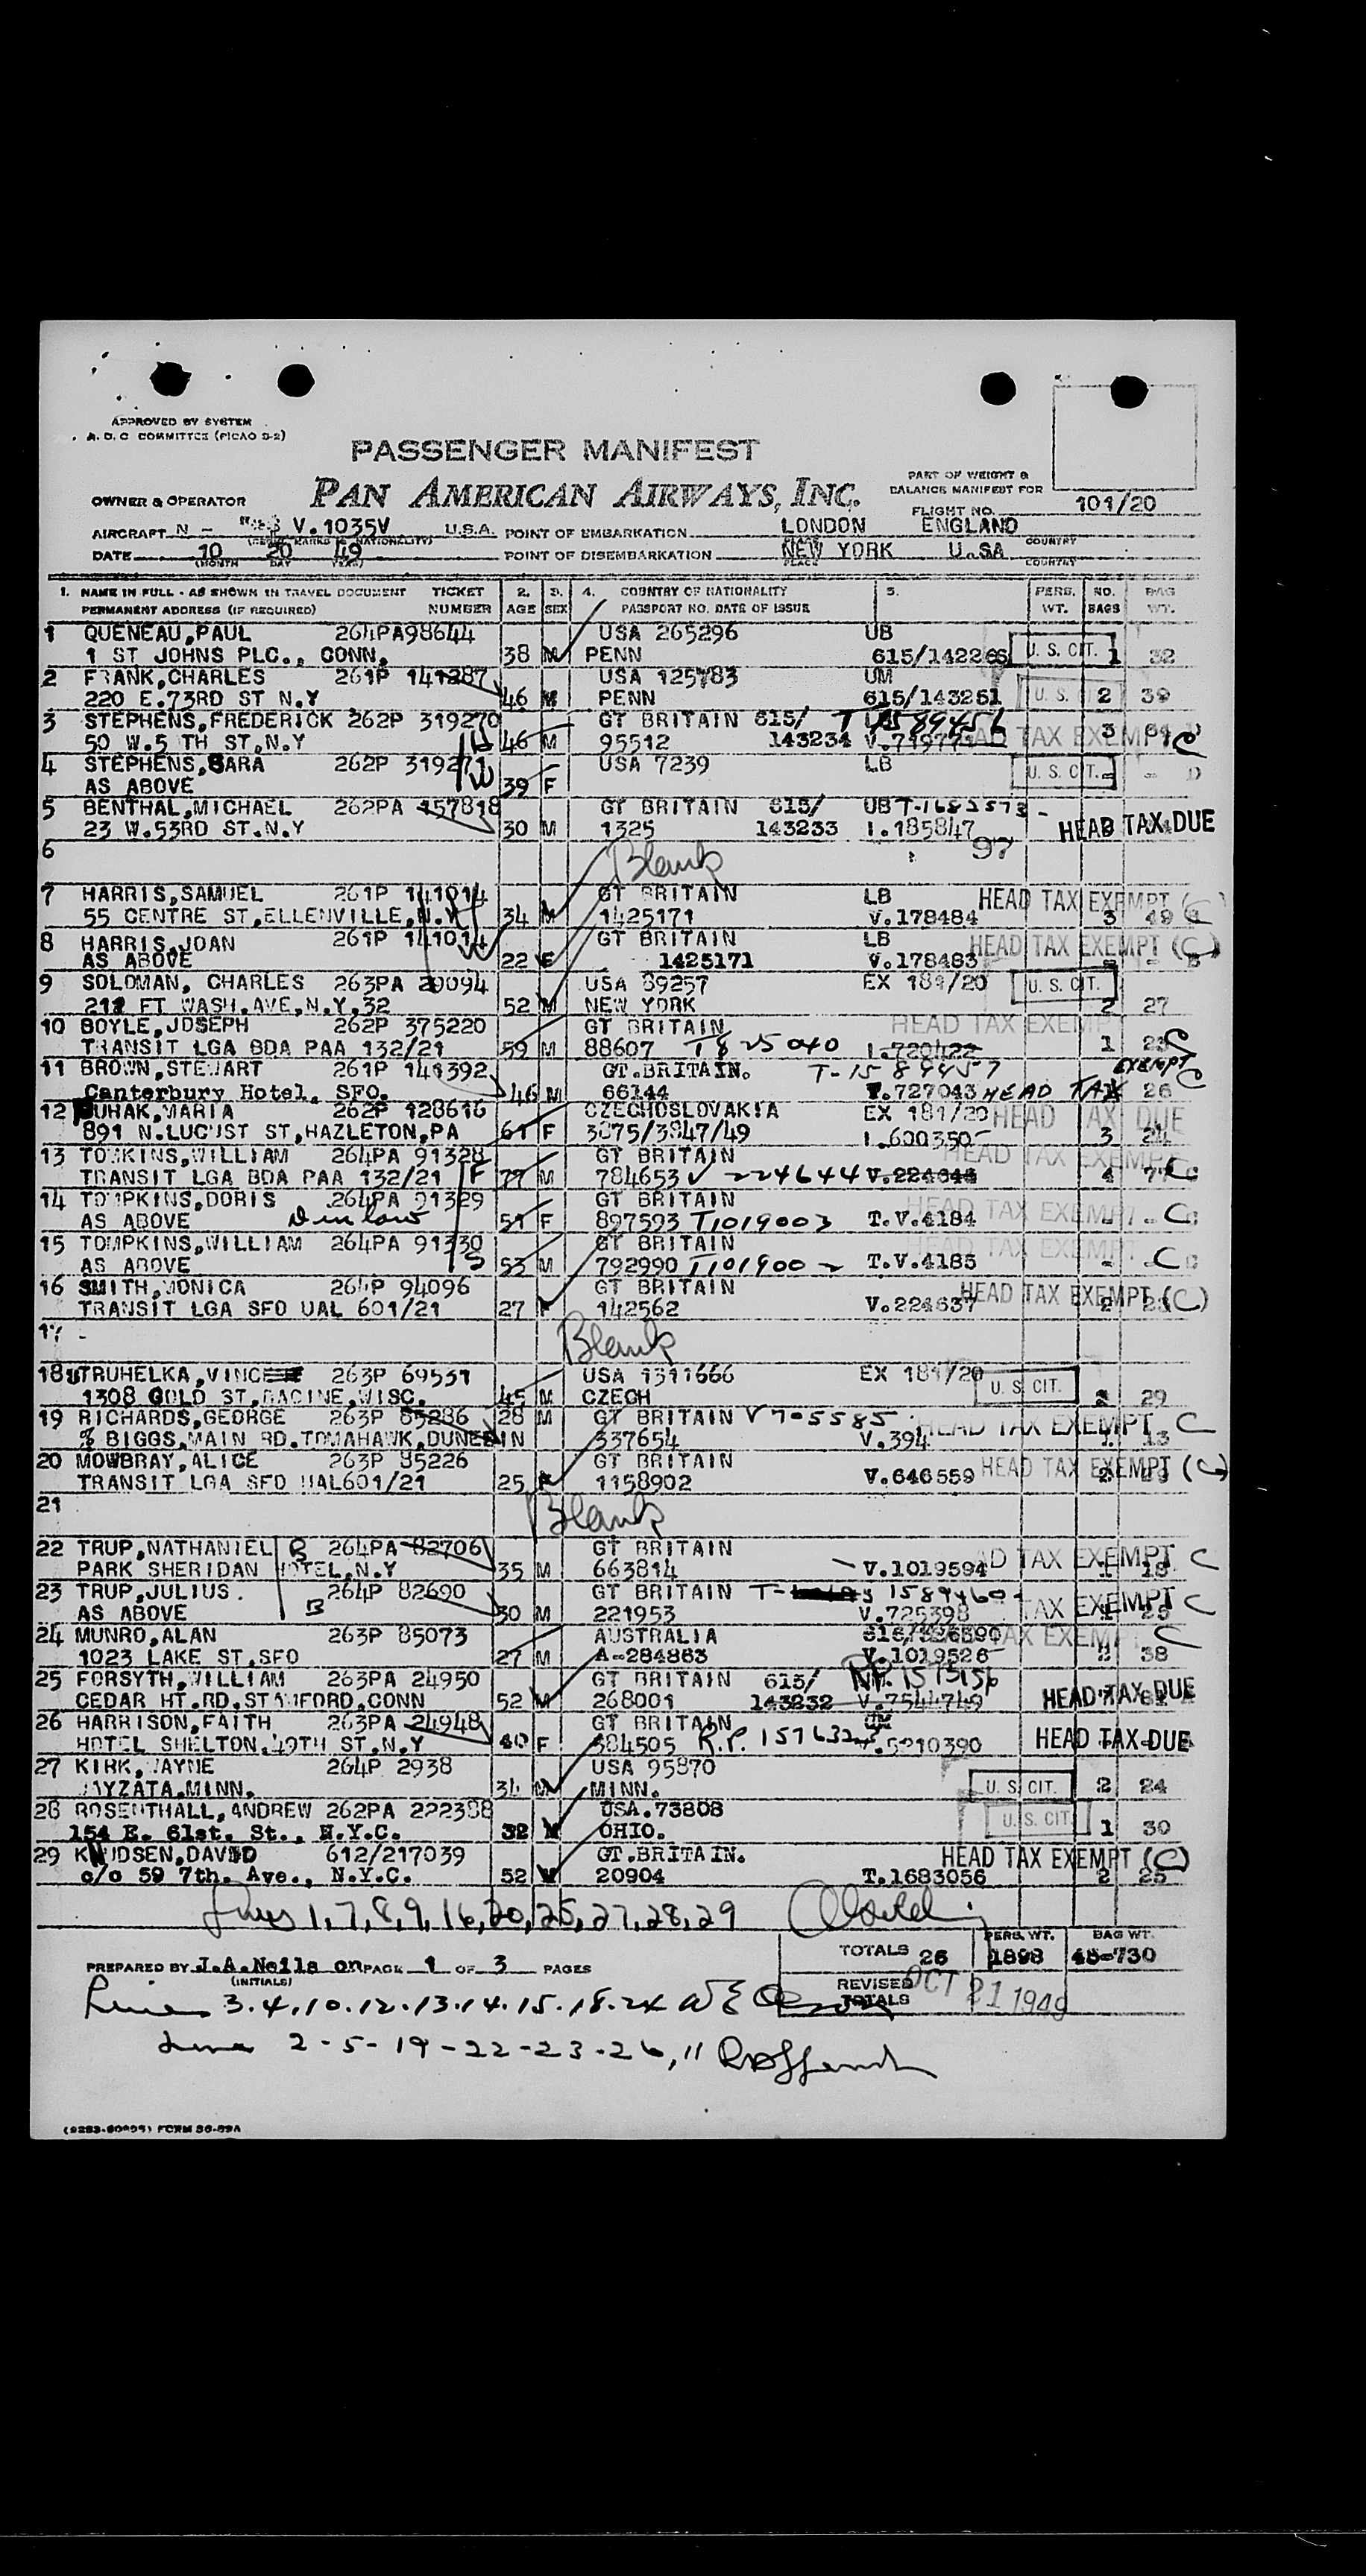 APPROVED BY SYSTEM
A. O. C COMMITTEE (PICAO S-2)
PASSENGER MANIFEST
OWNER & OPERATOR PAN AMERICAN AIRWAYS, INC.
PART OF WEIGHT &
BALANCE MANIFEST FOR
FLIGHT NO. 101/20
AIRCRAFT N - V.1035V U.S.A. POINT OF EMBARKATION LONDON ENGLAND
DATE 10 20 49 POINT OF DISEMBARKATION NEW YORK U.SA
(MONTH DAY YEAR) PLACE COUNTRY
1. NAME IN FULL - AS SHOWN IN TRAVEL DOCUMENT TICKET 2. 3. 4. COUNTRY OF NATIONALITY 5. PERS. NO. BAG
PERMANENT ADDRESS (IF REQUIRED) NUMBER AGE SEX PASSPORT NO. DATE OF ISSUE WT. BAGS WT.
1 QUENEAU,PAUL 264PA98644 USA 265296 UB
1 ST JOHNS PLC., CONN. 38 M PENN 615/142266 U. S. CIT. 1 32
2 FRANK,CHARLES 261P 141287 USA 125783 UM
220 E.73RD ST N.Y 46 M PENN 615/143251 U. S. 2 39
3 STEPHENS,FREDERICK 262P 319270 GT BRITAIN 615/ T 1589456
50 W.5 TH ST.N.Y 46 M 95512 143234 TAX EXEMPT 3 C
4 STEPHENS,SARA 262P 319271 USA 7239 LB
AS ABOVE 39 F U. S. CIT. - -
5 BENTHAL,MICHAEL 262PA 157818 GT BRITAIN 615/ UB
23 W.53RD ST.N.Y 30 M 1325 143233 I.185847 HEAD TAX DUE
6 Blank 97
7 HARRIS,SAMUEL 261P 141014 GT BRITAIN LB HEAD TAX EXEMPT (C)
55 CENTRE ST,ELLENVILLE,N.Y 34 M 1425171 V.178484 3 49
8 HARRIS,JOAN 261P 141014 GT BRITAIN LB HEAD TAX EXEMPT (C)
AS ABOVE 22 F 1425171 V.178483 - -
9 SOLOMAN, CHARLES 263PA 20094 USA 89257 EX 181/20 U. S. CIT.
211 FT WASH.AVE,N.Y.32 52 M NEW YORK 2 27
10 BOYLE,JOSEPH 262P 375220 GT BRITAIN HEAD TAX EXEMPT
TRANSIT LGA BDA PAA 132/21 59 M 88607 T825040 I.720422 1 C
11 BROWN,STEWART 261P 141392 GT.BRITAIN. T-1589457 EXEMPT C
Canterbury Hotel, SFO. 46 M 66144 727043 HEAD TAX 26
12 UHAK,MARIA 262P 128616 CZECHOSLOVAKIA EX 181/20 HEAD TAX DUE
891 N.LUCUST ST,HAZLETON,PA 61 F 3075/3847/49 I.600350 3 24
13 TOMKINS,WILLIAM 264PA 91328 GT BRITAIN HEAD TAX EXEMPT
TRANSIT LGA BDA PAA 132/21 F 77 M 784653 224644 4 C
14 TOMPKINS,DORIS 264PA 91329 GT BRITAIN HEAD TAX EXEMPT
AS ABOVE D in law 51 F 897593 T1019003 T.V.4184 - - C
15 TOMPKINS,WILLIAM 264PA 91330 GT BRITAIN HEAD TAX EXEMPT
AS ABOVE S 53 M 792990 T101900 T.V.4185 - - C
16 SMITH,MONICA 264P 94096 GT BRITAIN HEAD TAX EXEMPT (C)
TRANSIT LGA SFO UAL 601/21 27 F 142562 V.224637 2
17 - Blank
18 TRUHELKA,VINCE 263P 69531 USA 1311666 EX 181/20 U. S. CIT.
1308 GOLD ST,RACINE,WISC. 45 M CZECH 2 29
19 RICHARDS,GEORGE 263P 85286 28 M GT BRITAIN V705585 HEAD TAX EXEMPT C
% BIGGS,MAIN RD.TOMAHAWK,DUNEDIN 337654 V.394 1 13
20 MOWBRAY,ALICE 263P 85226 GT BRITAIN HEAD TAX EXEMPT (C)
TRANSIT LGA SFO UAL601/21 25 F 1158902 V.646559 2
21 Blank
22 TRUP,NATHANIEL B 264PA 82706 GT BRITAIN AD TAX EXEMPT C
PARK SHERIDAN HOTEL,N.Y 35 M 663814 V.1019594 1 18
23 TRUP,JULIUS. 264P 82690 GT BRITAIN T- 1589460 TAX EXEMPT C
AS ABOVE B 30 M 221953 V.725398 25
24 MUNRO,ALAN 263P 85073 AUSTRALIA TAX EXEMPT C
1023 LAKE ST.SFO 27 M A-284863 V.1019526 2 38
25 FORSYTH,WILLIAM 263PA 24950 GT BRITAIN 615/ 1573156
CEDAR HT.RD.STAMFORD,CONN 52 M 268001 143232 V.7544749 HEAD TAX DUE
26 HARRISON,FAITH 263PA 24948 GT BRITAIN
HOTEL SHELTON,49TH ST.N.Y 40 F 384505 R.P. HEAD TAX DUE
27 KIRK,WAYNE 264P 2938 USA 95870
WAYZATA,MINN. 34 M MINN. U. S. CIT. 2 24
28 ROSENTHALL,ANDREW 262PA 222388 USA.73808
154 E. 61st. St., N.Y.C. 32 M OHIO. U. S. CIT. 1 30
29 KNUDSEN,DAVID 612/217039 GT.BRITAIN. HEAD TAX EXEMPT (C)
c/o 59 7th. Ave., N.Y.C. 52 M 20904 T.1683056 2 25
Lines 1,7,8,9,16,20,25,27,28,29
PERS. WT. BAG WT.
TOTALS 26 1898 45-730
PREPARED BY J.A.Neills on PAGE 1 OF 3 PAGES
(INITIALS)
REVISED TOTALS OCT 21 1949
Lines 3.4.10.12.13.14.15.18.24
Lines 2-5-19-22-23-26,11